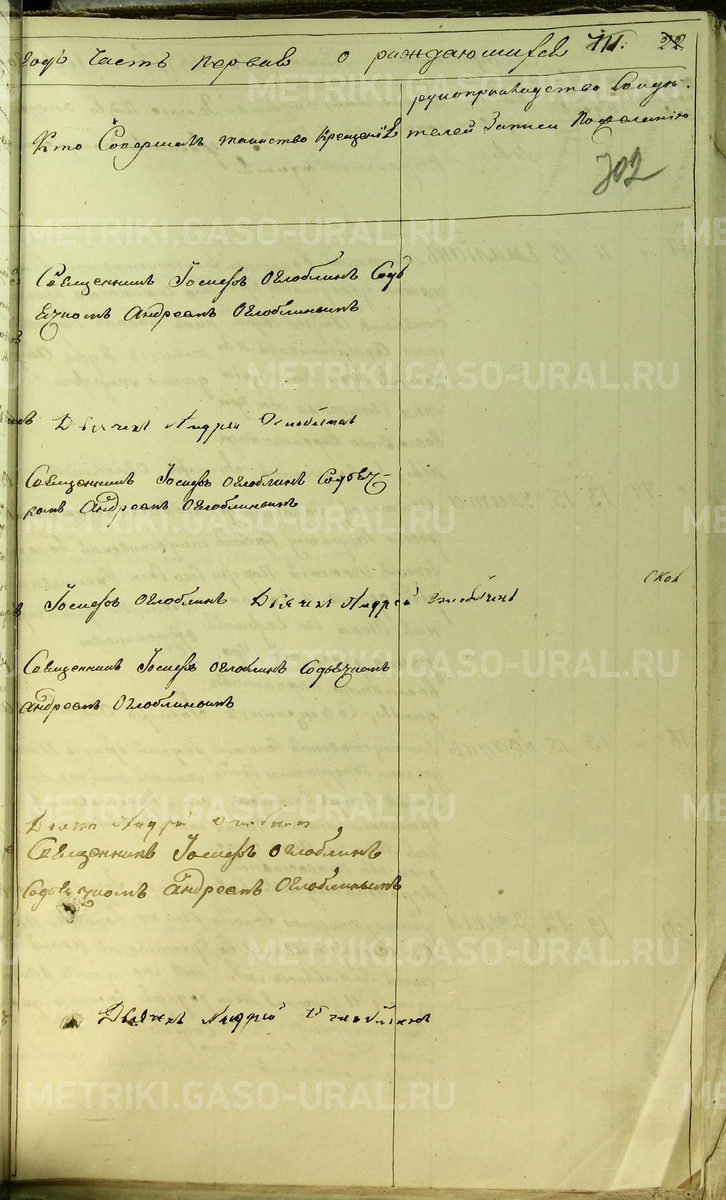 годъ Часть первая о рождающихся 111. 32
Кто Совершалъ таинство Крещенія
рукоприкладство Свидѣ-
телей Записи По желанію
702
Священникъ Іосифъ Оглоблинъ Съ дь
ячкомъ Андреемъ Оглоблинымъ
Дьячекъ Андрей Оглоблинъ
Священникъ Іосифъ Оглоблинъ Съ дьяч-
комъ Андреемъ Оглоблинымъ
Іосифъ Оглоблинъ Дьячекъ Андрей Оглоблинъ
Священникъ Іосифъ Оглоблинъ Съ дьячкомъ
Андреемъ Оглоблинымъ
Дьячекъ Андрей Оглоблинъ
Священникъ Іосифъ Оглоблинъ
Съ дьячкомъ Андреемъ Оглоблинымъ
Дьячекъ Андрей Оглоблинъ
METRIKI.GASO-URAL.RU